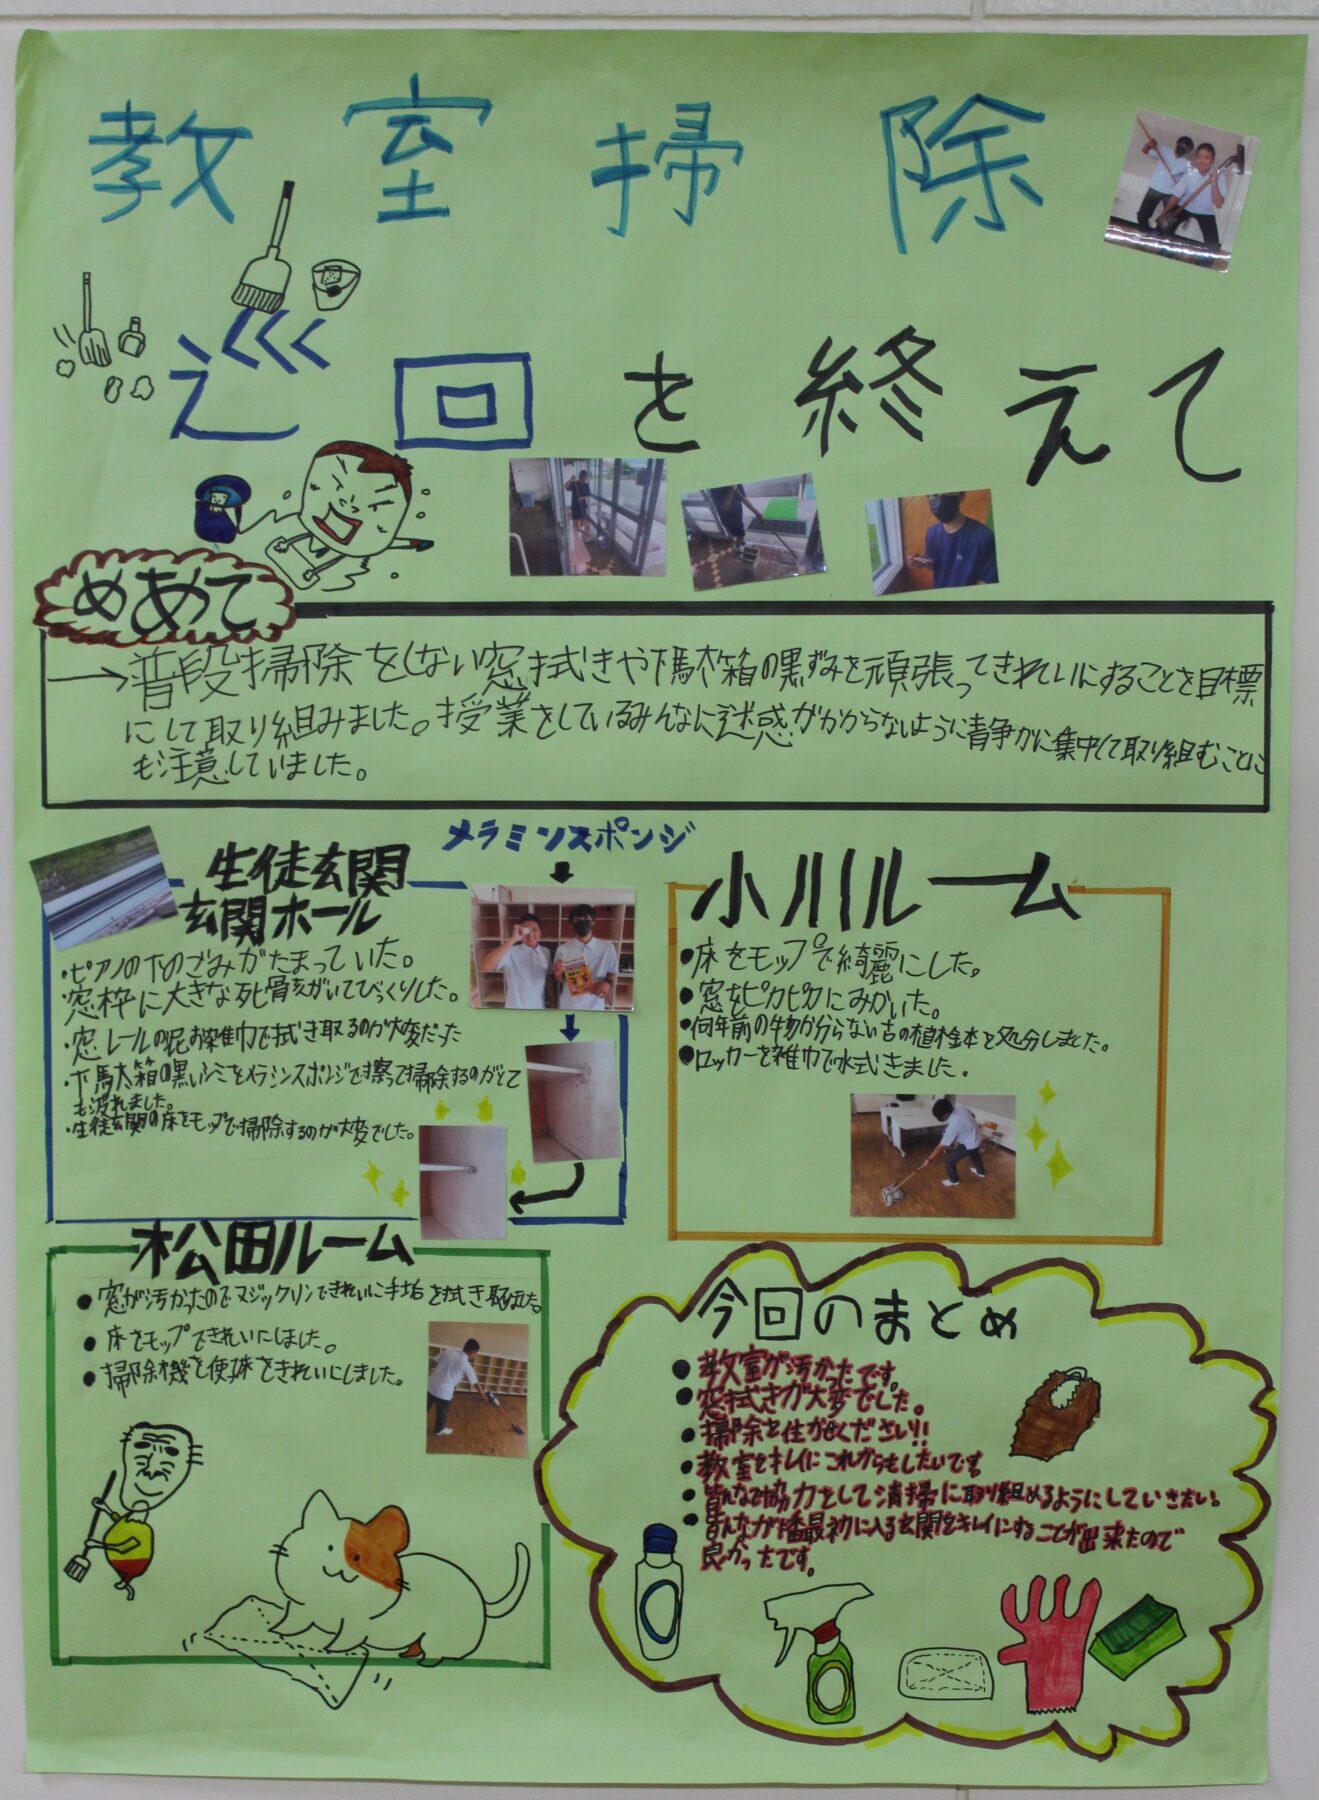 教室掃除
巡回を終えて
めあて
→普段掃除をしない窓拭きや下駄箱の黒ずみを頑張ってきれいにすることを目標
にして取り組みました。授業をしているみんなに迷惑がかからないように静かに集中して取り組むことに
も注意していました。
メラミンスポンジ
生徒玄関
玄関ホール
・ピアノの下のごみがたまっていた。
・窓枠に大きな死骸がいてびっくりした。
・窓レールの泥お雑巾で拭き取るのが大変だった
・下駄箱の黒いシミをメラミンスポンジで擦って掃除するのがとて
も疲れました。
・生徒玄関の床をモップで掃除するのが大変でした。
小川ルーム
●床をモップで綺麗にした。
●窓をピカピカにみがいた。
●何年前の物か分らない古の植木を処分しました。
●ロッカーを雑巾で水拭きました.
松田ルーム
●窓が汚かったのでマジックリンできれいに手垢を拭き取ました。
●床をモップできれいにしました。
●掃除機を使床をきれいにしました。
今回のまとめ
●教室が汚かったです。
●窓拭きが大変でした。
●掃除を任かせください!!
●教室をキレイにこれからもしたいです。
●皆んなで協力をして清掃に取り組めるようにしていきたい。
●皆んなが1番最初に入る玄関をキレイにすることが出来たので
良かったです。